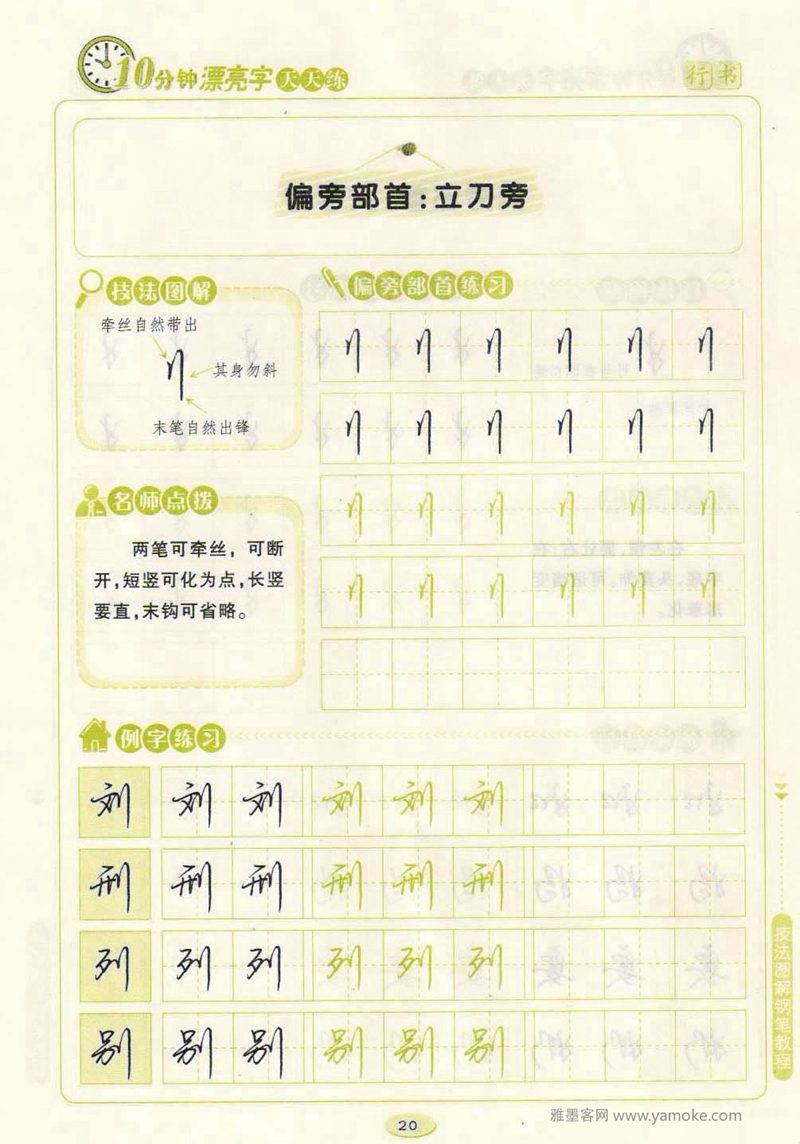 10分钟漂亮字天天练
行书
偏旁部首:立刀旁
技法图解
牵丝自然带出
刂
其身勿斜
末笔自然出锋
名师点拨
两笔可牵丝，可断
开,短竖可化为点,长竖
要直,末钩可省略。
偏旁部首练习
刂 刂 刂 刂 刂 刂
刂 刂 刂 刂 刂 刂
刂 刂 刂 刂 刂 刂
刂 刂 刂 刂 刂 刂
例字练习
刘 刘 刘 刘 刘 刘
刑 刑 刑 刑 刑 刑
列 列 列 列 列 列
别 别 别 别 别 别
技法图解钢笔教程
20
雅墨客网 www.yamoke.com